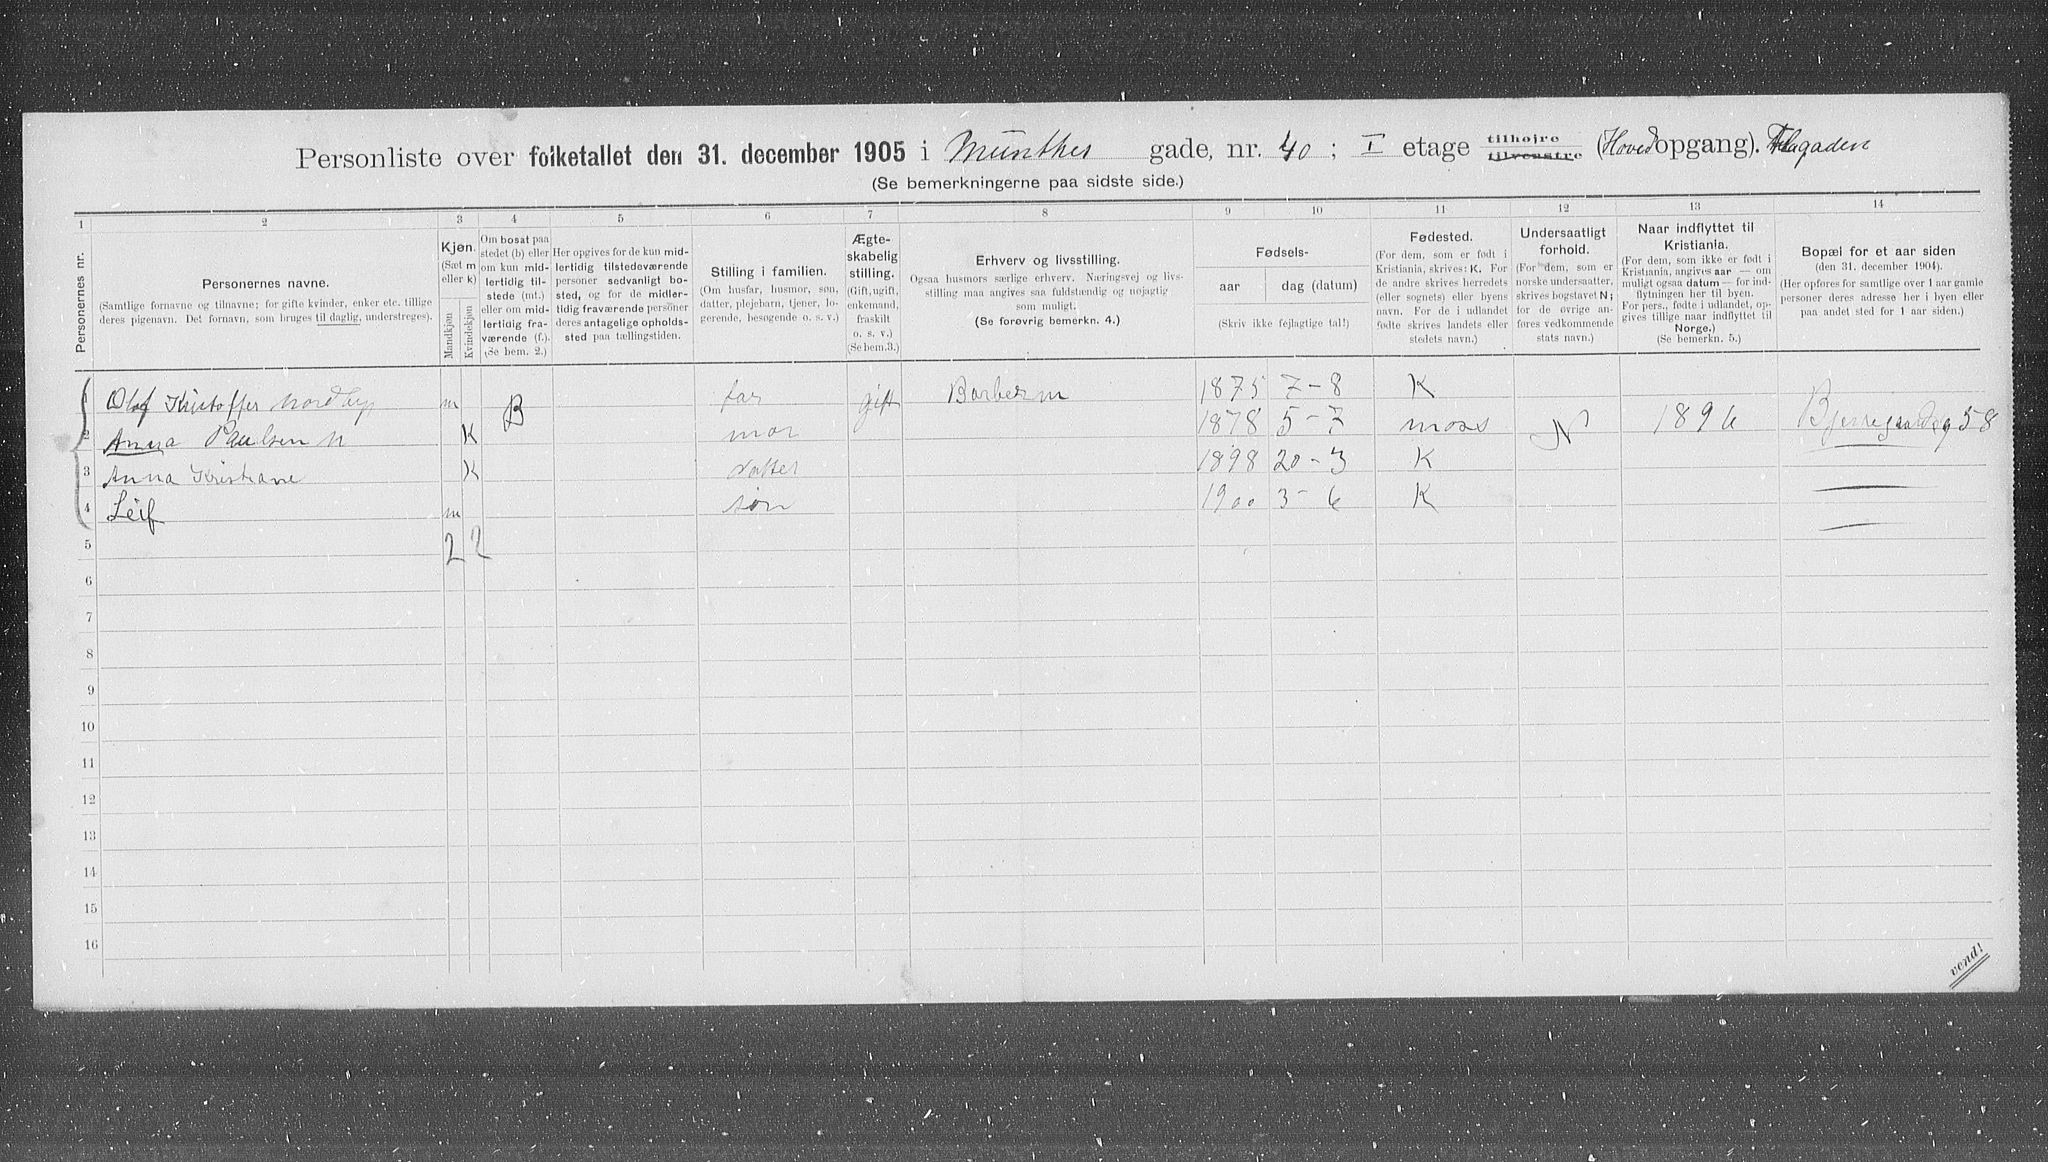 Personliste over folketallet den 31. december 1905 i Munthes gade, nr. 40 ; I etage tilhøjre tilvenstre (Hovedopgang).
(Se bemerkningerne paa sidste side.)
1 2 3 4 5 6 7 8 9 10 11 12 13 14
Personernes nr.
Personernes navne.
(Samtlige fornavne og tilnavne; for gifte kvinder, enker etc. tillige
deres pigenavn. Det fornavn, som bruges til daglig, understreges).
Kjøn.
(Sæt m
eller k)
Mandkjøn
Kvindekjøn
Om bosat paa
stedet (b) eller
om kun mid-
lertidig til-
stede (mt.)
eller om mid-
lertidig fra-
værende (f.).
(Se bem. 2.)
Her opgives for de kun mid-
lertidig tilstedeværende
personer sedvanligt bo-
sted, og for de midler-
tidig fraværende personer
deres antagelige opholds-
sted paa tællingstiden.
Stilling i familien.
(Om husfar, husmor, søn,
datter, plejebarn, tjener, lo-
gerende, besøgende o. s. v.)
Ægte-
skabelig
stilling.
(Gift, ugift,
enkemand,
fraskilt
o. s. v.)
(Se bem.3.)
Erhverv og livsstilling.
Ogsaa husmors særlige erhverv. Næringsvej og livs-
stilling maa angives saa fuldstændig og nøjagtig
som muligt.
(Se forøvrig bemerkn. 4.)
Fødsels-
aar
dag (datum)
(Skriv ikke fejlagtige tal!)
Fødested.
(For dem, som er født i
Kristiania, skrives: K. For
de andre skrives herredets
(eller sognets) eller byens
navn. For de i udlandet
fødte skrives landets eller
stedets navn.)
Undersaatligt
forhold.
(For dem, som er
norske undersaatter,
skrives bogstavet N;
for de øvrige an-
føres vedkommende
stats navn.)
Naar indflyttet til
Kristiania.
(For dem, som ikke er født i
Kristiania, angives aar — om
muligt ogsaa datum — for ind-
flytningen her til byen.
For pers., fødte i udlandet, op-
gives tillige naar indflyttet til
Norge.)
(Se bemerkn. 5.)
Bopæl for et aar siden
(den 31. december 1904).
(Her opføres for samtlige over 1 aar gamle
personer deres adresse her i byen eller
paa andet sted for 1 aar siden.)
1 Olaf Kristoffer Nordby m B far gift Barber m 1875 7-8 K
2 Anna Paulsen N K mor 1878 5-7 moss N 1896 Bjerregaardsg 58
3 Anna Kristiane K datter 1898 20-3 K
4 Leif m søn 1900 3-6 K
5 2 2
6
7
8
9
10
11
12
13
14
15
16
vend!